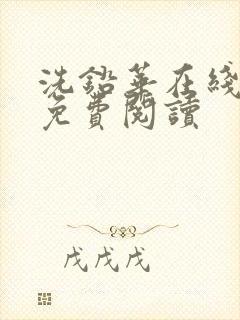 洗鉛華在綫
免費閱讀
戊戊戊